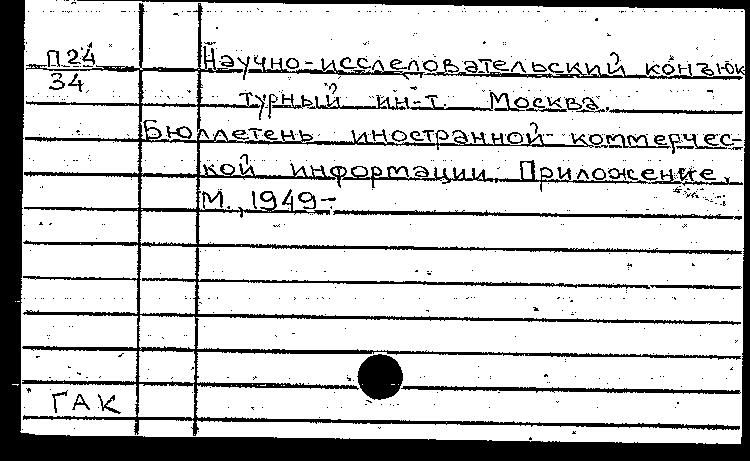 П24
34
Научно-исследовательский конъюк
турный ин-т. Москва.
Бюллетень иностранной коммерчес-
кой информации. Приложение.
М., 1949-
ГАК